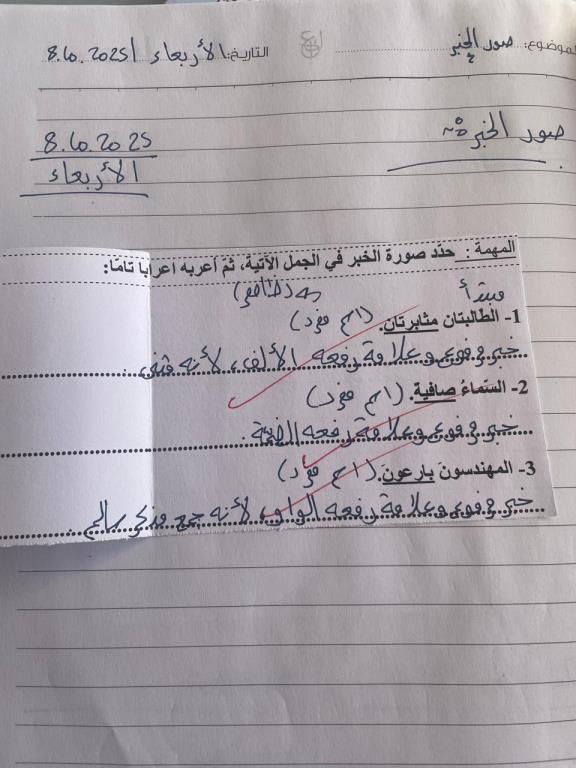 الموضوع: صور الخبر التاريخ: الأربعاء 8.10.2025
صور الخبر:
8.10.2025
الأربعاء
المهمة : حدّد صورة الخبر في الجمل الآتية، ثمّ أعربه اعرابا تامّا:
مبتدأ
1- الطالبتان مثابرتان. (اسم مفرد)
خبر مرفوع وعلامة رفعه الألف، لأنه مثنى.
2- السّماءُ صافية. (اسم مفرد)
خبر مرفوع وعلامة رفعه الضمة.
3- المهندسون بارعون. (اسم مفرد)
خبر مرفوع وعلامة رفعه الواو، لأنه جمع مذكر سالم.